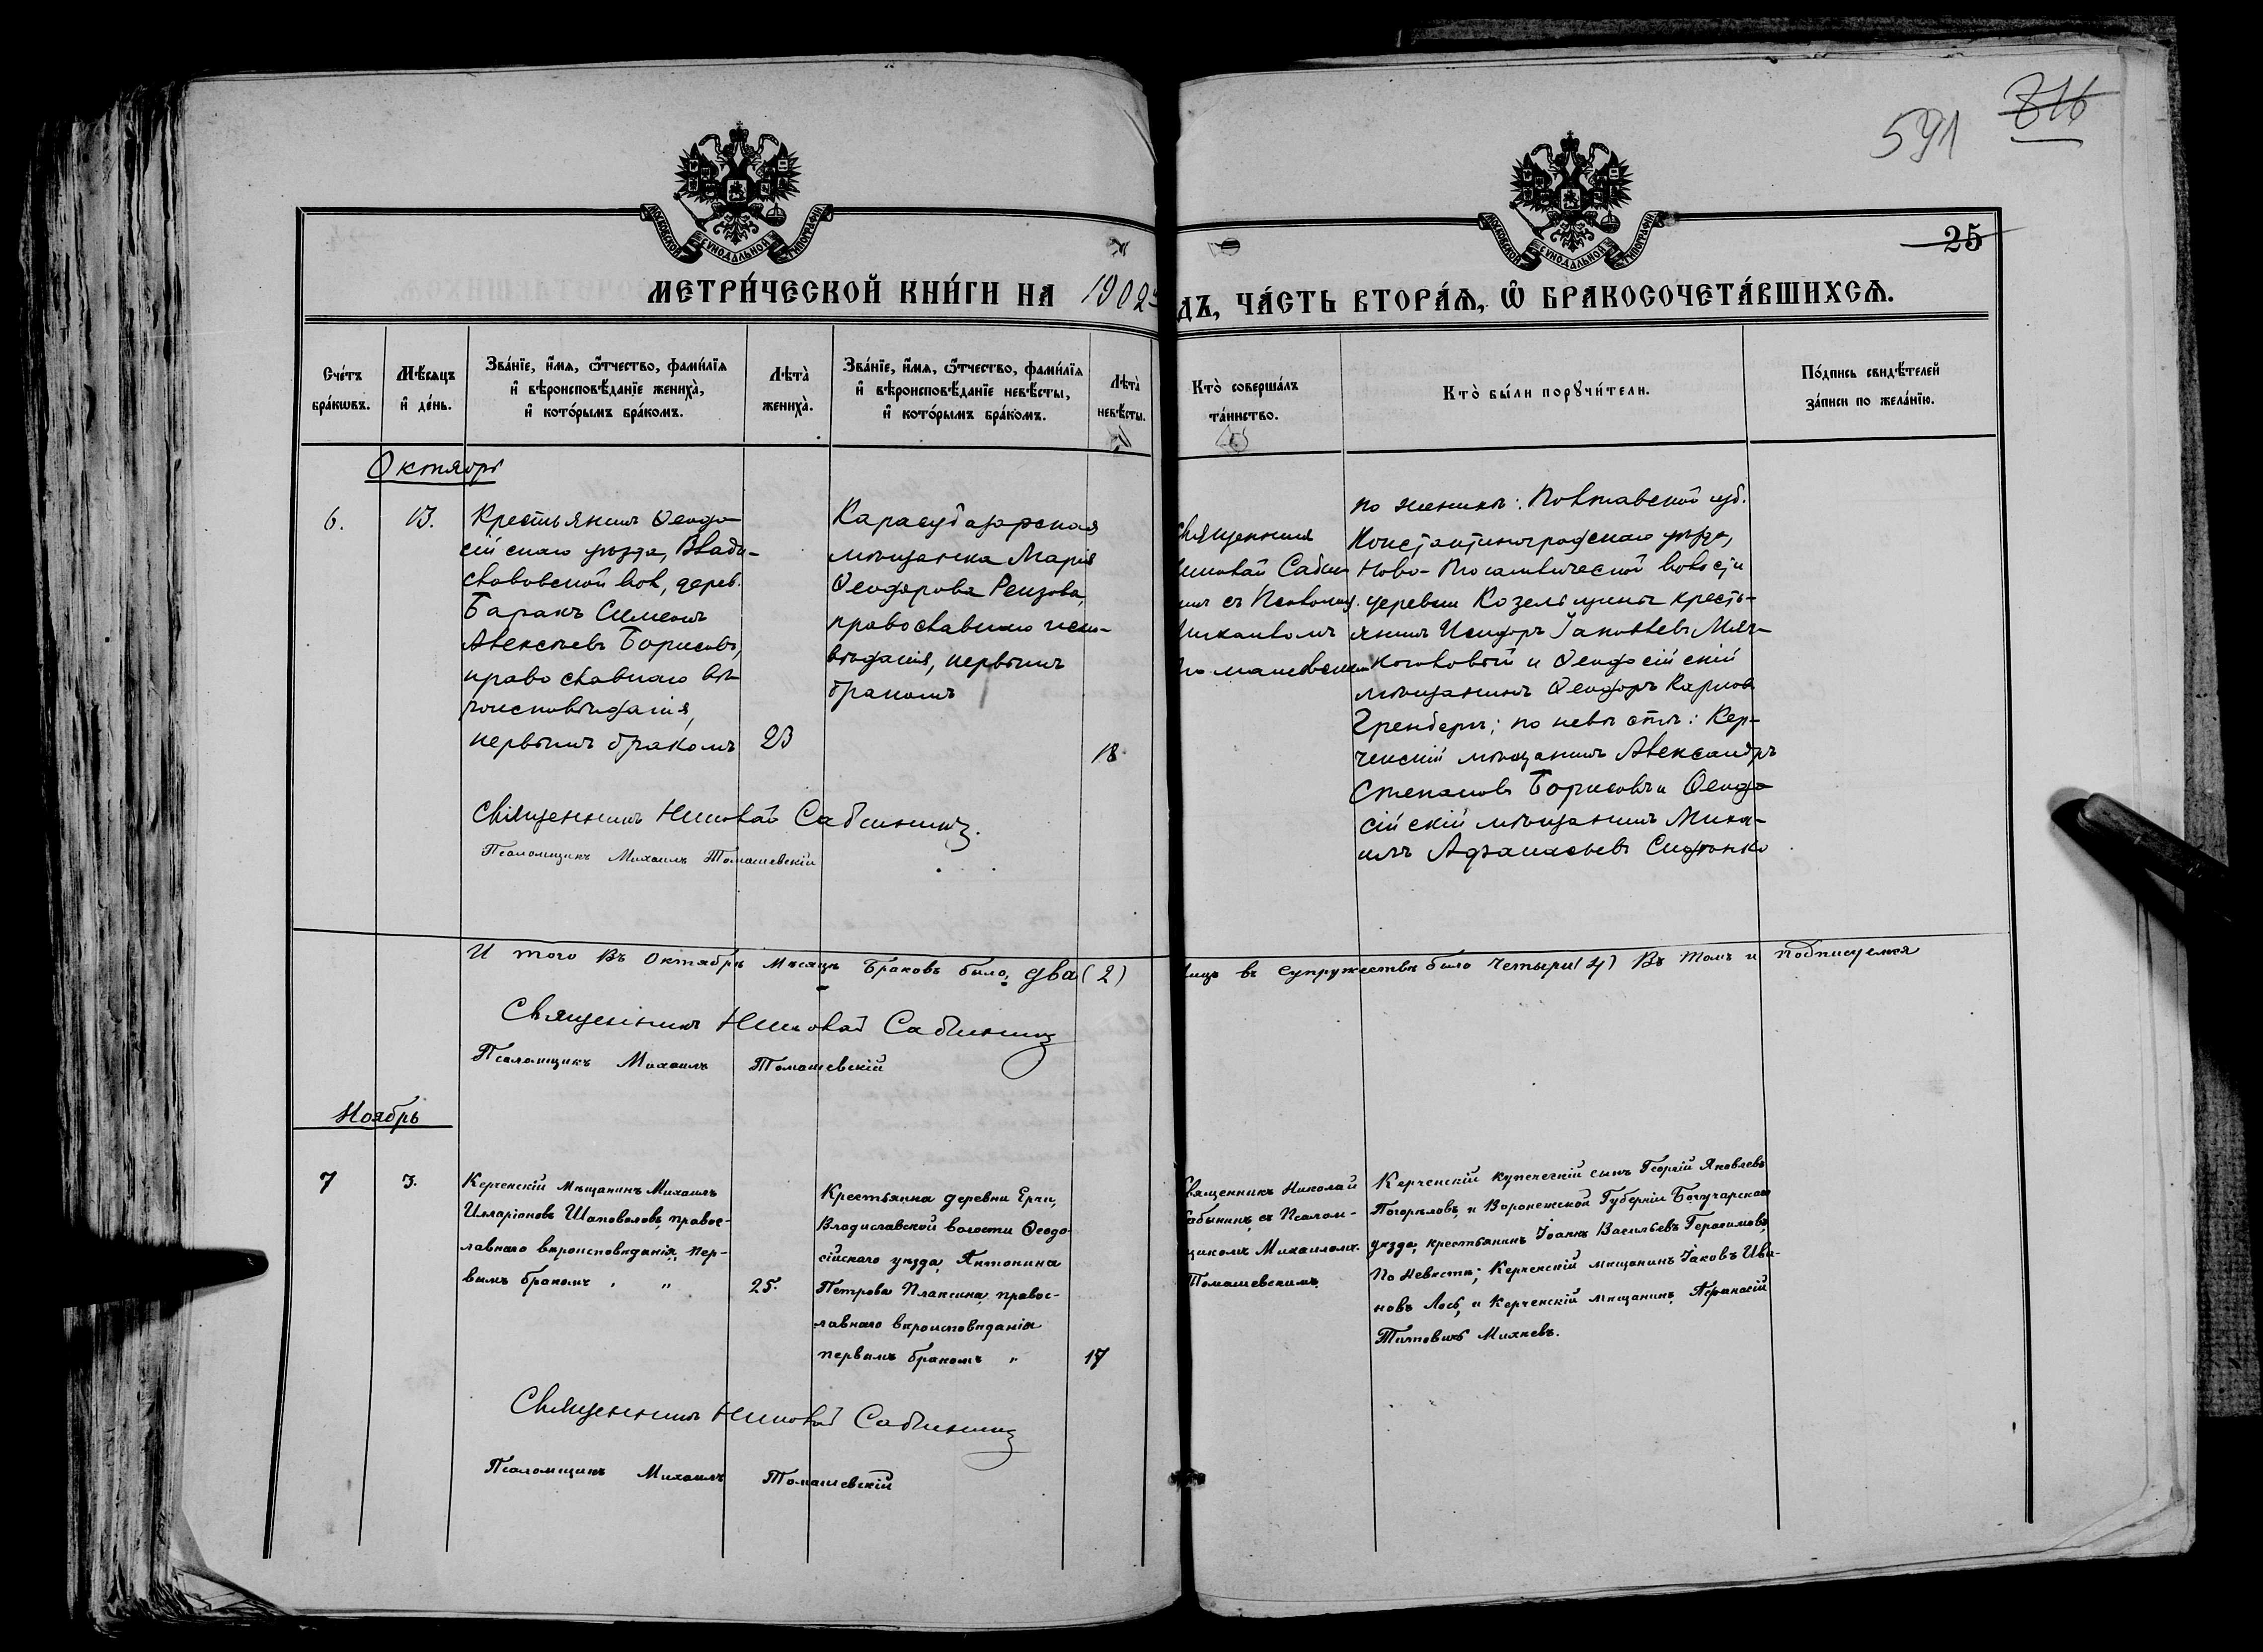 591 816
МОСКОВСКОЙ СѴНОДАЛЬНОЙ ТИПОГРАФІИ
МОСКОВСКОЙ СѴНОДАЛЬНОЙ ТИПОГРАФІИ
25
МЕТРИ́ЧЕСКОЙ КНИ́ГИ НА 1902
ДЪ, ЧА́СТЬ ВТОРА́Ѧ, Ѽ БРАКОСОЧЕТА́ВШИХСѦ.
Сче́тъ
бра́кѡвъ.
Мѣ́сяцъ
и҆ де́нь.
Зва́нїе, и҆́мя, ѻ҆́тчество, фами́лїя
и҆ вѣроисповѣ́данїе жениха̀,
и҆ кото́рымъ бра́комъ.
Лѣта̀
жениха̀.
Зва́нїе, и҆́мя, ѻ҆́тчество, фами́лїя
и҆ вѣроисповѣ́данїе невѣ́сты,
и҆ кото́рымъ бра́комъ.
Лѣта̀
невѣ́сты.
Кто̀ соверша́лъ
та́инство.
Кто̀ бы́ли порꙋчи́тели.
По́дпись свидѣ́телей
за́писи по жела́нїю.
Октябрь
6.
13.
Крестьянинъ Ѳеодо-
сійскаго уѣзда, Влади-
славовской вол, дерев.
Баракъ Симеонъ
Алексѣевъ Борисовъ,
православнаго вѣ-
роисповѣданія,
первымъ бракомъ
23
Карасубазарская
мѣщанка Марія
Ѳеодорова Резцова,
православнаго испо-
вѣданія, первымъ
бракомъ
18
Священникъ
Николай Сабы-
нинъ съ Псаломщ.
Михаиломъ
Томашевскимъ
по женихѣ: Полтавской губ.
Константиноградскаго уѣзда,
Ново- волости
деревни Козельщины кресть-
янинъ Исидоръ Іаковлевъ Мяг-
коголовый и Ѳеодосійскій
мѣщанинъ Ѳеодоръ Карловъ
Гренберъ; по невѣстѣ: Кер-
ченскій мѣщанинъ Александръ
Степановъ Борисовъ и Ѳеодо
сійскій мѣщанинъ Миха-
илъ Аѳанасьевъ
Священникъ Николай Сабынинъ.
Псаломщикъ Михаилъ Томашевскій
И того въ Октябрѣ мѣсяцѣ браковъ было, два (2)
Лицъ въ супружествѣ было четыри (4) Въ томъ и подписуемся
Священникъ Николай Сабынинъ
Псаломщикъ Михаилъ Томашевскій
Ноябрь
7
3.
Керченскій Мѣщанинъ Михаилъ
Илларіоновъ Шаповаловъ, правос-
лавнаго вѣроисповѣданія, пер-
вымъ бракомъ " "
25.
Крестьянка деревни Ерчи,
Владиславской волости Ѳеодо-
сійскаго уѣзда, Антонина
Петрова Плаксина, правос-
лавнаго вѣроисповѣданія
первымъ бракомъ "
17
Священникъ Николай
Сабынинъ, съ Псалом-
щикомъ Михаиломъ.
Томашевскимъ.
Керченскій купеческій сынъ Георгій Яковлевъ
Погорѣловъ, и Воронежской Губерніи Богучарскаго
уѣзда, крестьянинъ Іоаннъ Васильевъ Герасимовъ,
По Невѣстѣ; Керченскій мѣщанинъ Іаковъ Ива-
новъ Лось, и Керченскій мѣщанинъ, Аѳанасій
Титовъ Михневъ.
Священникъ Николай Сабынинъ
Псаломщикъ Михаилъ Томашевскій